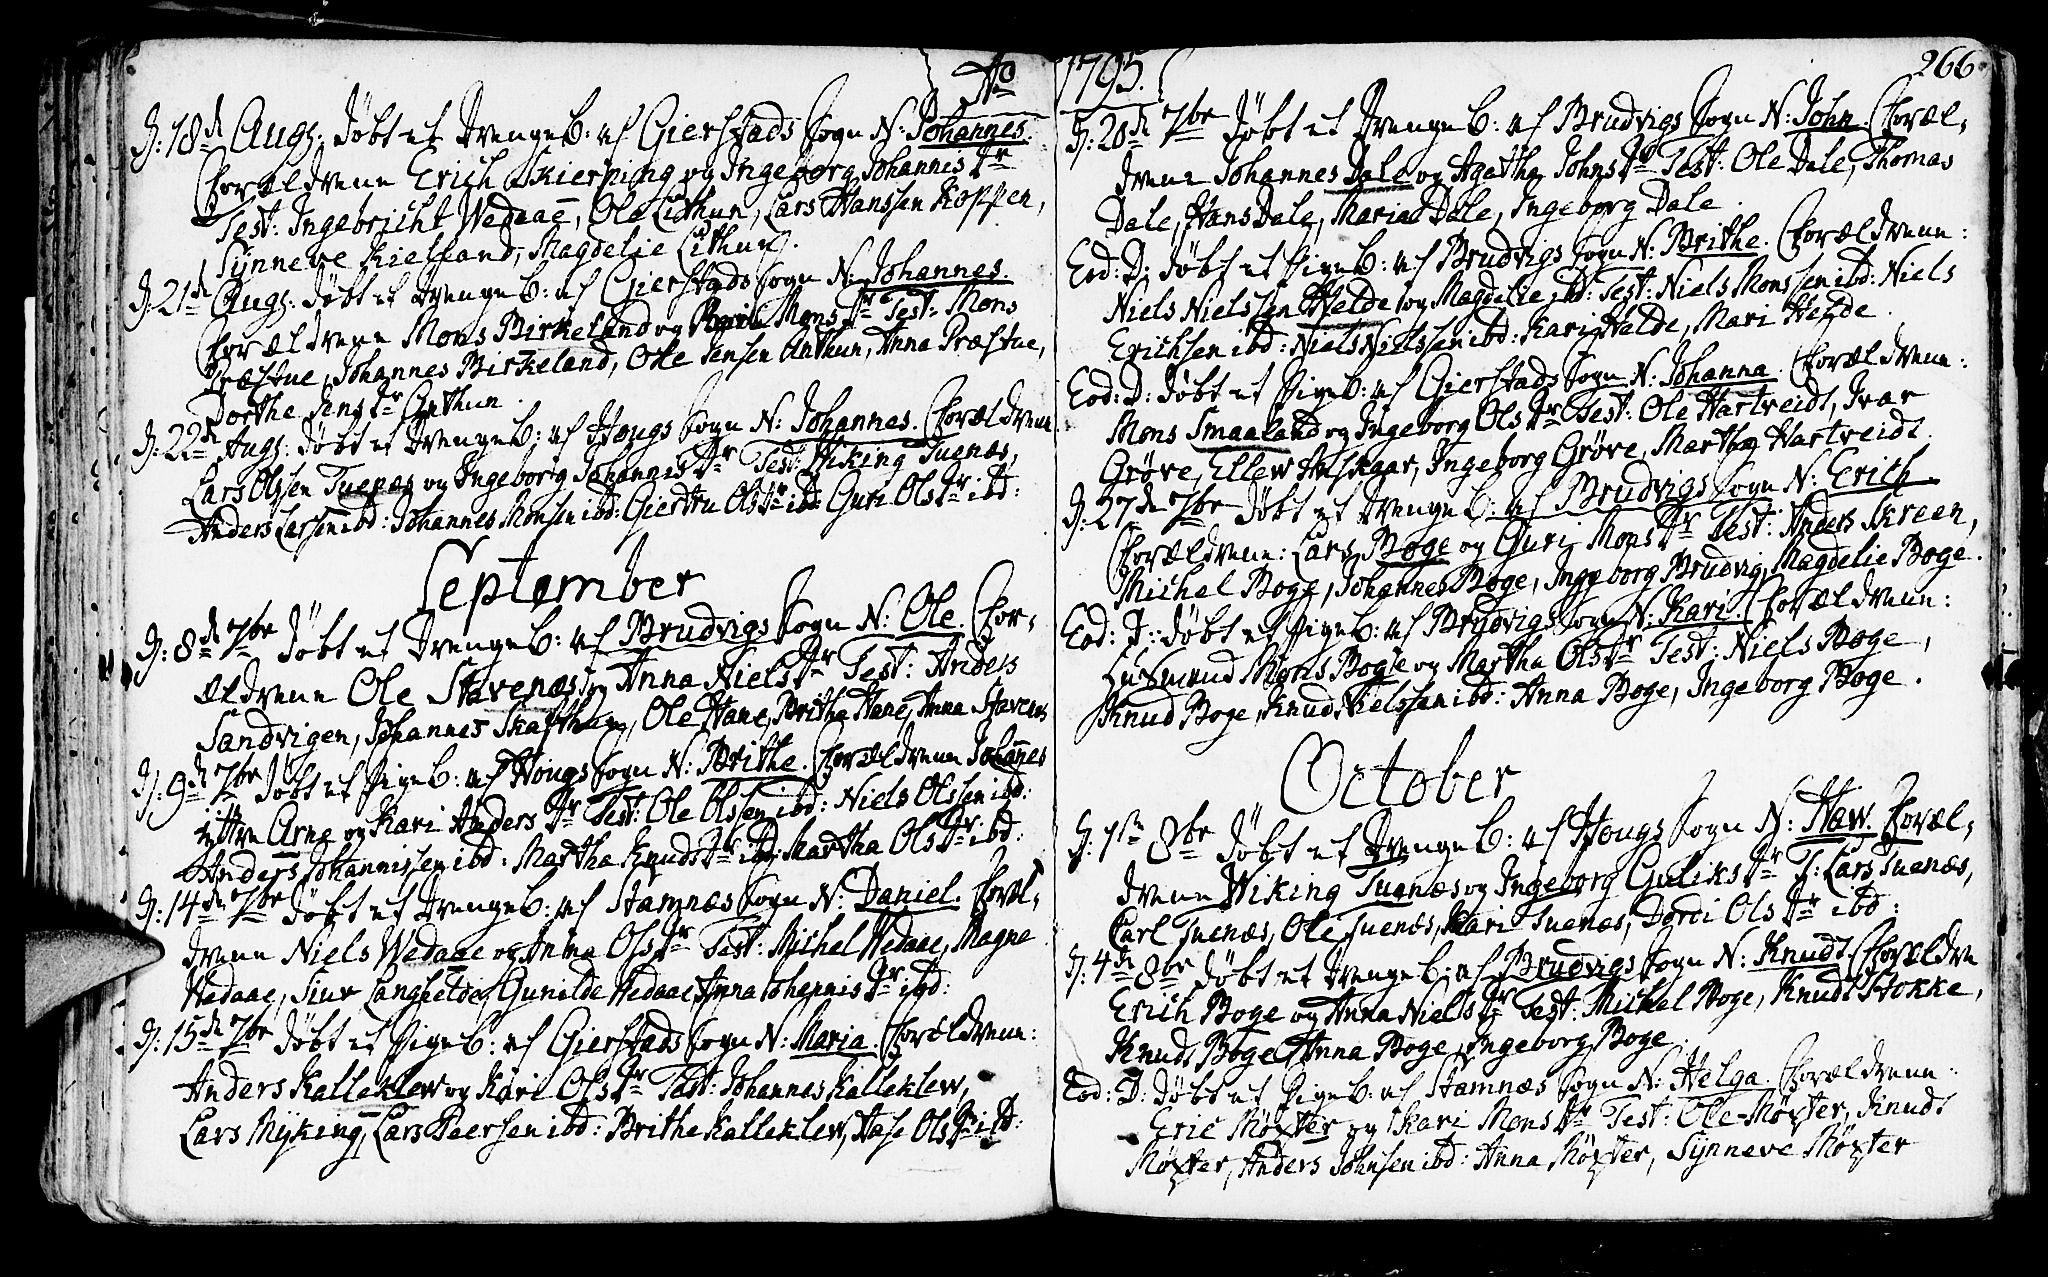 Ao
D: 18de Augs: døbt et Drenge B: af Gierstads Sogn N: Johannes.
Forældrene Erich Skierping og Ingeborg Johannis Dr
Test: Ingebricht Wedaae, Ole Lithun, Lars Hanssen Koppen,
Synneve Kielland, Magdelie Lithun.
D: 21de Augs: døbt et Drenge B: af Gierstads Sogn N: Johannes.
Forældrene Mons Birkeland og Mons Dr Test: Mons
Præstue, Johannes Birkeland, Ole Jensen Anthun, Anna Præstue,
Dorthe Jens Dr Anthun.
D: 22de Augs: døbt et Drenge B: af Hougs Sogn N: Johannes. Forældrene
Lars Olssen Tuenæs og Ingeborg Johannis Dr Test: Wiking Tuenæs,
Anders Larsen ibd: Johannes Monsen ibd: Giertru Ols Dr ibd: Guri Ols Dr ibd:
September
D: 8de 7br døbt et Drenge B: af Brudvigs Sogn N: Ole. For-
ældrene Ole Stavenæs og Anna Niels Dr Test: Anders
Sandvigen, Johannes Skafthun, Ole Hane, Britha Hane, Anna Stavenes
D: 9de 7br døbt et Pige B: af Hougs Sogn N: Brithe. Forældrene Johannes
Arne og Kari Anders Dr Test: Ole Olssen ibd: Niels Olssen ibd:
Anders Johannissen ibd: Martha Knuds Dr ibd: Martha Ols Dr ibd:
D: 14de 7br døbt et Drenge B: af Stamnæs Sogn N: Daniel. Foræl-
drene Niels Wedaae og Anna Ols Dr Test: Michel Wedaae, Magne
Wedaae, Siur Langhelde, Gunilde Wedaae, Anna Johannis Dr ibd:
D: 15de 7br døbt et Pige B: af Gierstads Sogn N: Maria. Forældrene:
Anders Kalleklew og Kari Ols Dr Test: Johannes Kalleklew,
Lars Myking, Lars Peersen ibd: Brithe Kalleklew, Aase Ols Dr ibd:
1795.
266
D: 20de 7br døbt et Drenge B: af Brudvigs Sogn N: John. Foræl-
drene Johannes Dale og Agatha Johns Dr Test: Ole Dale, Thomas
Dale, Hans Dale, Maria Dale, Ingeborg Dale.
Eod: D: døbt et Pige B: af Brudvigs Sogn N: Brithe. Forældrene:
Niels Nielssen Helde og Magdelie ibd: Test: Niels Monssen ibd: Niels
Erichsen ibd: Niels Nielssen ibd: Kari Helde, Mari Helde.
Eod: D: døbt et Pige B: af Gierstads Sogn N: Johanna. Forældrene:
Mons Smaaland og Ingeborg Ols Dr Test: Ole Hartveidt, Ivar
Grøve, Ellew, Ingeborg Grøve, Martha Hartveidt.
D: 27de 7br døbt et Drenge B: af Brudvigs Sogn N: Erich
Forældrene: Lars Boge og Guri Mons Dr Test: Anders Skreen,
Michel Boge, Johannes Boge, Ingeborg Brudvig, Magdelie Boge.
Eod: D: døbt et Pige B: af Brudvigs Sogn N: Kari. Forældrene:
Husmand Mons Boge og Martha Ols Dr Test: Niels Boge,
Knud Boge, Knud Nielssen ibd: Anna Boge, Ingeborg Boge.
October
D: 1ste 8br døbt et Drenge B: af Hougs Sogn N: Haw. Foræl-
drene Wiking Tuenæs og Ingeborg Guliks Dr T: Lars Tuenæs,
Carl Tuenæs, Ole Tuenæs, Kari Tuenæs, Dordi Ols Dr ibd:
D: 4de 8br døbt et Drenge B: af Brudvigs Sogn N: Knudt. Forældrene
Erich Boge og Anna Niels Dr Test: Michel Boge, Knudt Stokke,
Knudt Boge, Anna Boge, Ingeborg Boge.
Eod: D: døbt et Pige B: af Stamnæs Sogn N: Helga Forældrene:
Eric Møxter og Kari Mons Dr Test: Ole Møxter, Knudt
Møxter, Anders Johnsen ibd: Anna Møxter, Synneve Møxter